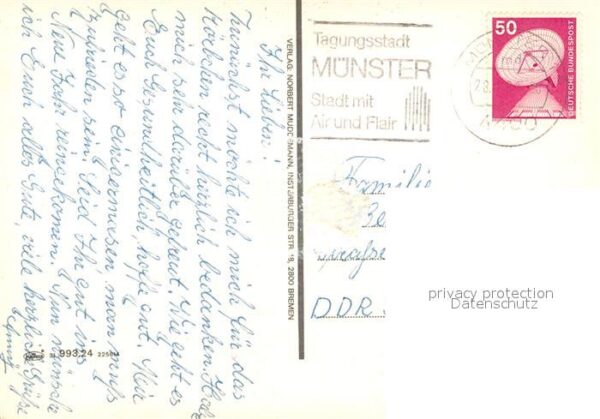 Ihr Lieben!
Zunächst möchte ich mich für das
Hörbchen recht herzlich bedanken. Habe
mich sehr darüber gefreut. Wie geht es
Euch Gesundheitlich, hoffe gut. Mir
Geht es so einigermasen man muß
zufrieden sein. Seid Ihr gut ins
Neue Jahr reingekommen. Nun wünsche
ich Euch alles Gute, viele herzliche Grüße
993.24
VERLAG: NORBERT MUDDEMANN, INSTERBURGER STR. 18, 2800 BREMEN
Tagungsstadt
MÜNSTER
Stadt mit
Air und Flair
50
DEUTSCHE BUNDESPOST
4400
Familie
DDR
privacy protection
Datenschutz